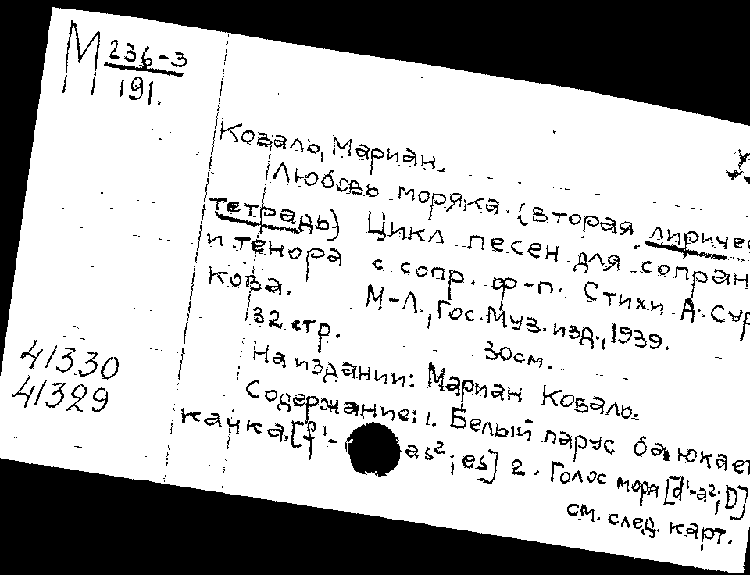 М 236-3
191.
Коваль, Мариан.
Любовь моряка. (Вторая лириче
тетрадь) Цикл песен для сопран
и тенора с сопр. ф-п. Стихи А. Сур
кова. М-Л., Гос. Муз. изд., 1939.
32 стр. 30см.
На издании: Мариан Коваль.
Содержание: 1. Белый парус баюкает
качка. [f¹- as²; es] 2. Голос моря [d¹-a²; D]
см. след. карт.
41330
41329